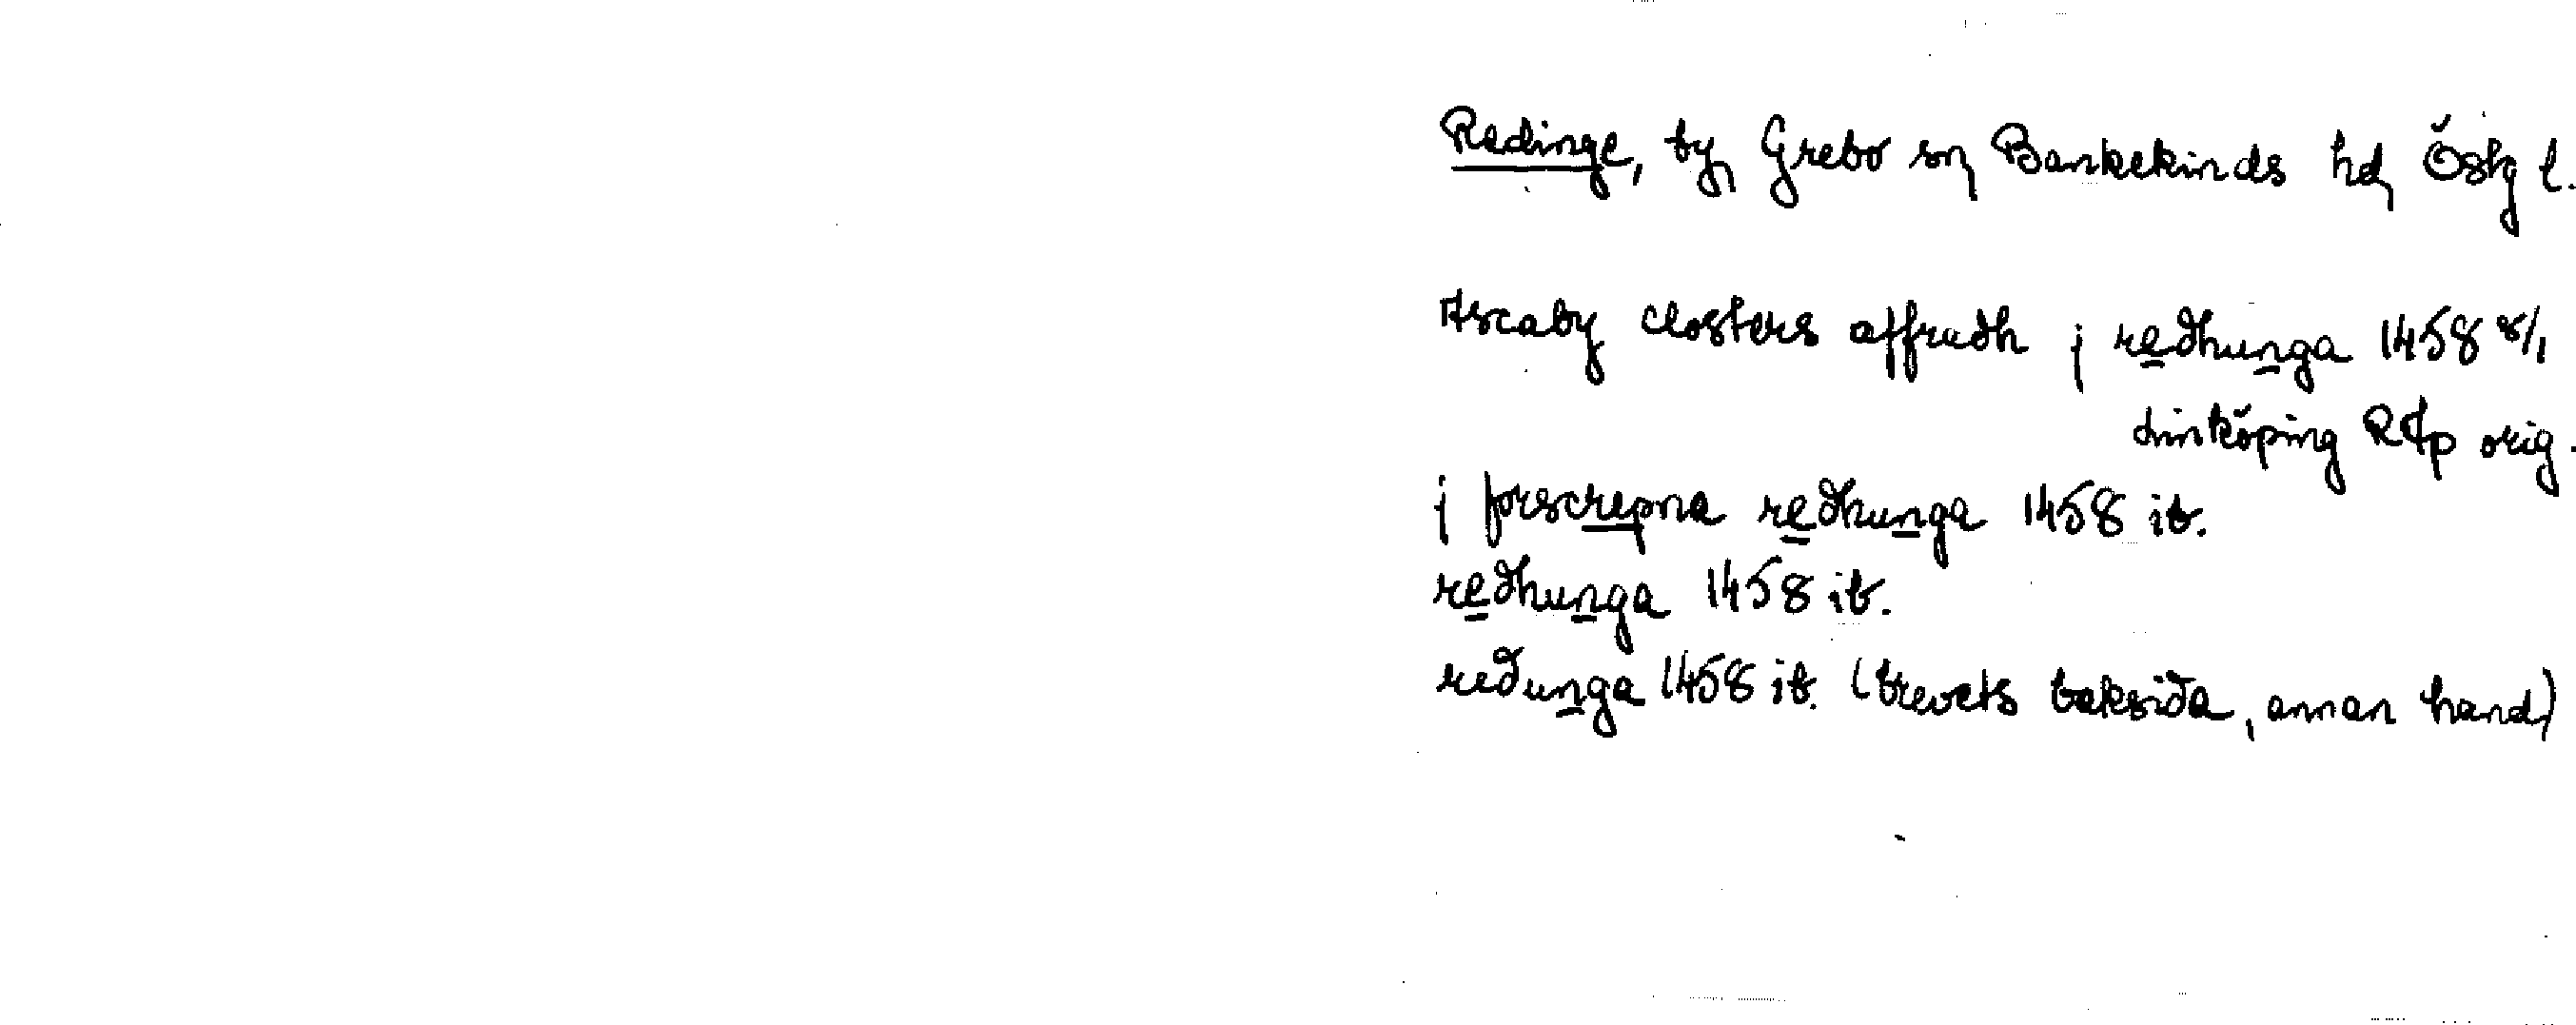 Redinge, by, Grebo sn, Bankekinds hd, Östg l.
Ascaby closters affradh j redhunga 1458 8/1
Linköping RAp orig.
j forscrepna redhunga 1458 ib.
redhunga 1458 ib.
redunga 1458 ib. (brevets baksida, annan hand)